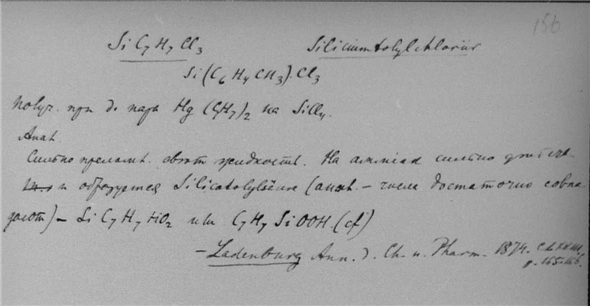 156
SiC7H7Cl3 Siliciumtolylchlorür
Si(C6H4CH3).Cl3
Получ. при д. пара Hg(C7H7)2 на SiCl4.
Анал.
Сильно преломл. свет жидкость. На аммиак сильно действ.
и образуется Silicotolylsäure (анал. – числа достаточно совпа
дают) – SiC7H7HO2 или C7H7SiOOH. (cf)
– Ladenburg Ann. d. Ch. u. Pharm. 1874. CLXXIII.
p. 165-166.